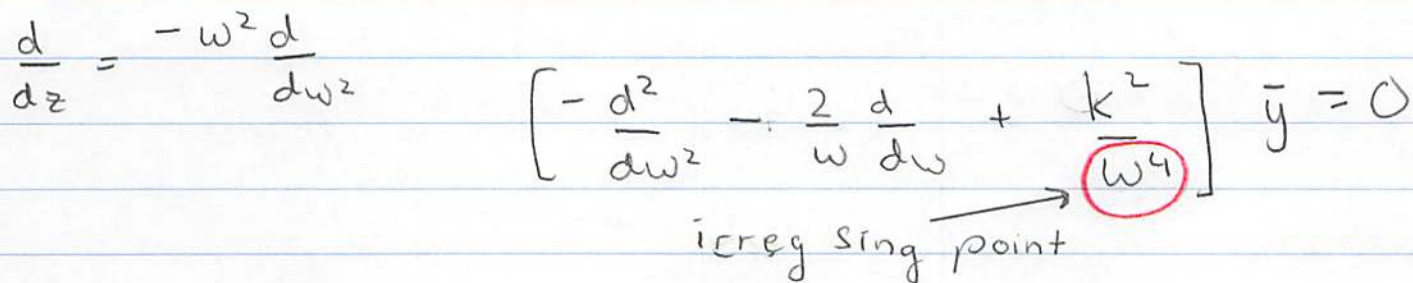 d/dz = -w² d/dw²
[ -d²/dw² - 2/w d/dw + k²/w⁴ ] ȳ = 0
irreg sing point